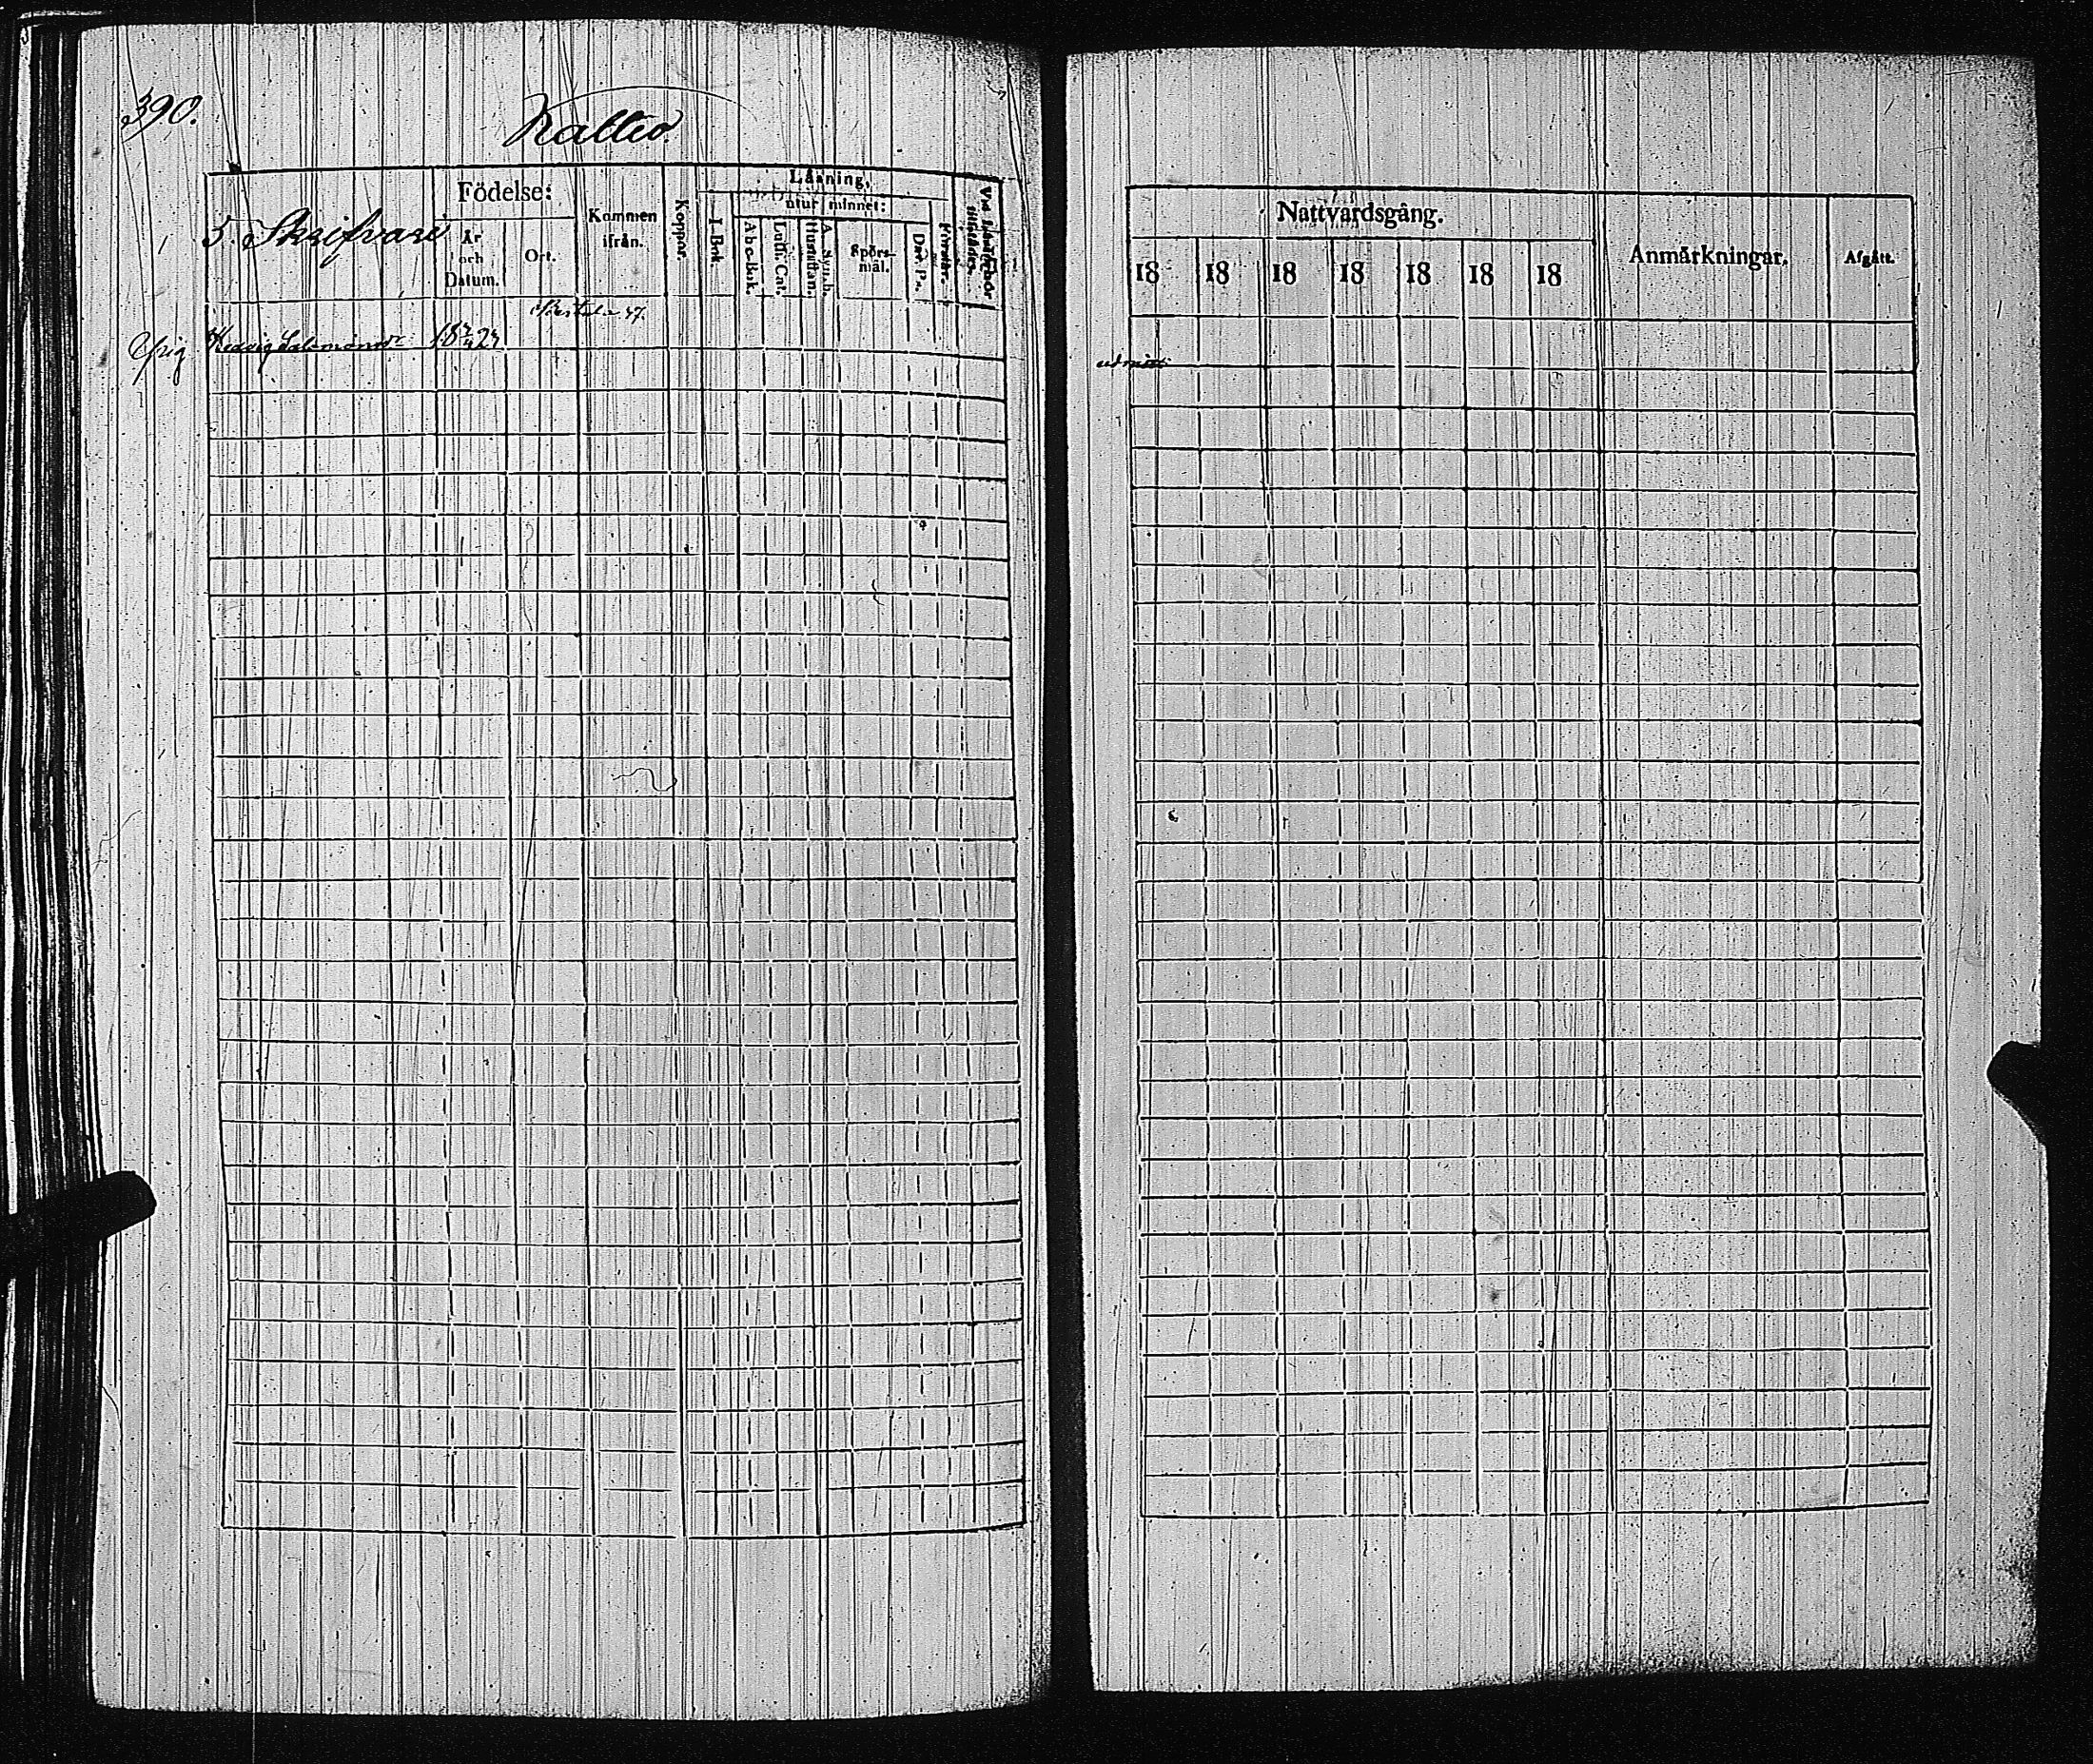 390.
Kallio.
5. Skrifvare
Födelse:
År
och
Datum.
Ort.
Kommen
ifrån.
Koppor.
Låsning,
utur minnet:
I. Bok.
Abc-Bok.
Luth. Cat.
Hustaflan.
A. Symb.
Spörs-
mål.
Dav. Ps.
Förstår.
Vid Läseförhör
tillstädes.
Hedvig Salomonsdr 18 27
Nattvardsgång.
18 18 18 18 18 18 18
Anmärkningar.
Afgått.